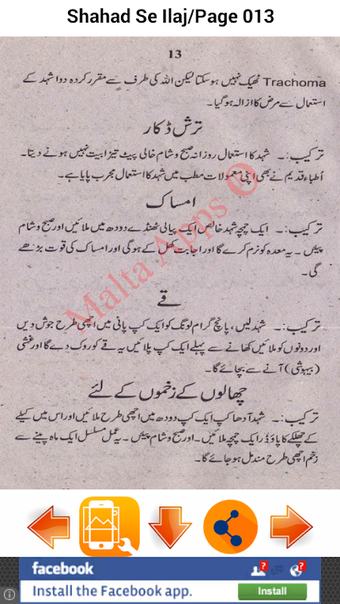 Shahad Se Ilaj/Page 013
13
Trachoma ٹھیک نہیں ہو سکتا لیکن اللہ کی طرف سے مقرر کردہ دوا شہد کے
استعمال سے مرض کا ازالہ ہو گیا۔
ترش ڈکار
ترکیب:۔ شہد کا استعمال روزانہ صبح و شام خالی پیٹ تیزابیت نہیں ہونے دیتا۔
اطباء قدیم نے بھی اپنی معمولات مطب میں شہد کا استعمال مجرب پایا ہے۔
امساک
ترکیب:۔ ایک چمچہ شہد خالص ایک پیالی ٹھنڈے دودھ میں ملائیں اور صبح و شام
پئیں۔ یہ معدہ کو نرم کرے گا اور اجابت کھل کے ہوگی اور امساک کی قوت بڑھے
گی۔
قے
ترکیب:۔ شہد لیں، پانچ گرام لونگ کو ایک کپ پانی میں اچھی طرح جوش دیں
اور دونوں کو ملائیں کھانے سے پہلے ایک کپ پلائیں یہ قے کو روک دے گا اور غشی
(بیہوشی) آنے سے بچائے گا۔
چھالوں کے زخموں کے لئے
ترکیب:۔ شہد آدھا کپ ایک کپ دودھ میں اچھی طرح ملائیں اور اس میں کیلے
کے چھلکے کا پاؤڈر ایک چمچ ملائیں۔ اور صبح و شام پئیں۔ یہ عمل مسلسل ایک ماہ پینے سے
زخم اچھی طرح مندمل ہو جائے گا۔
Malta Apps ©
facebook
Install the Facebook app.
Install